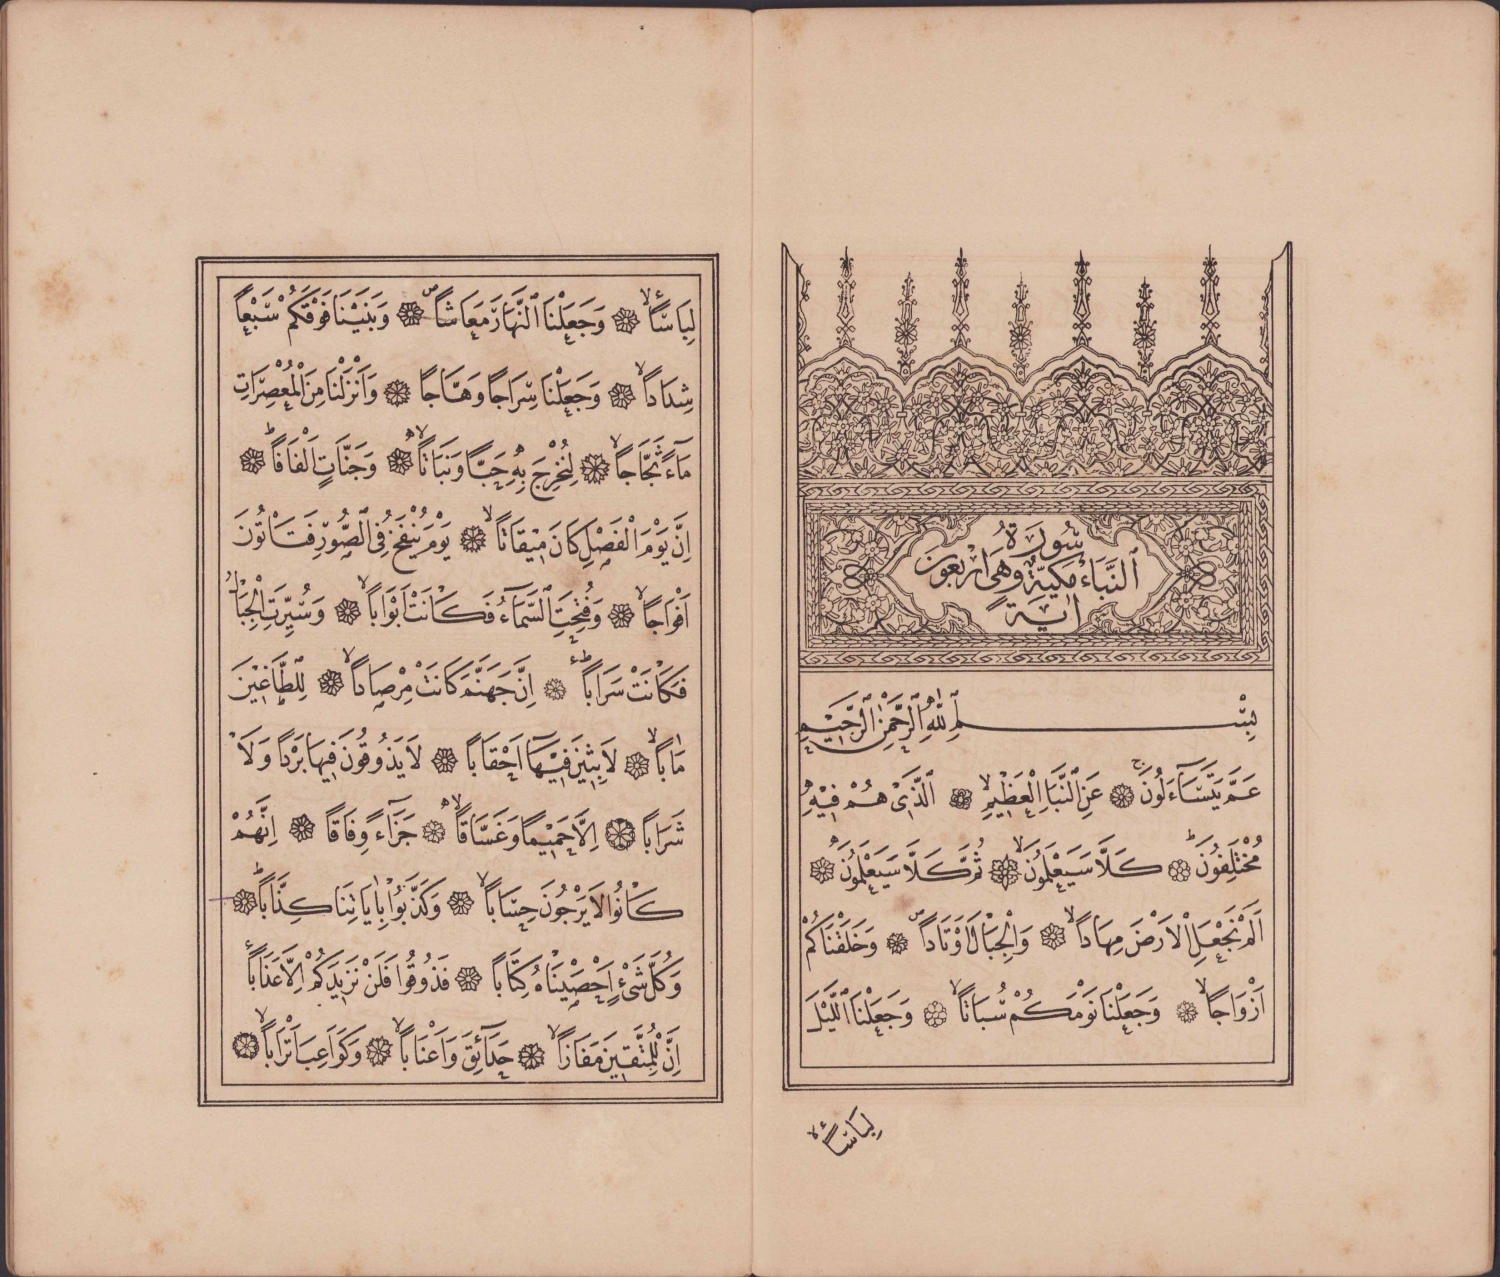 سُورَةُ
اَلنَّبَاءِ مَكِّيَّةٌ وَهِىَ اَرْبَعُونَ
اٰيَةً
بِسْمِ اللّٰهِ الرَّحْمٰنِ الرَّحِيمِ
عَمَّ يَتَسَاءَلُونَۚ ۞ عَنِ النَّبَاِ الْعَظِيمِۙ ۞ اَلَّذِى هُمْ فِيهِ
مُخْتَلِفُونَۜ ۞ كَلَّا سَيَعْلَمُونَۙ ۞ ثُمَّ كَلَّا سَيَعْلَمُونَ ۞
اَلَمْ نَجْعَلِ الْاَرْضَ مِهَادًاۙ ۞ وَالْجِبَالَ اَوْتَادًاۖ ۞ وَخَلَقْنَاكُمْ
اَزْوَاجًاۙ ۞ وَجَعَلْنَا نَوْمَكُمْ سُبَاتًاۙ ۞ وَجَعَلْنَا الَّيْلَ
لِبَاسًاۙ
لِبَاسًاۙ ۞ وَجَعَلْنَا النَّهَارَ مَعَاشًاۖ ۞ وَبَنَيْنَا فَوْقَكُمْ سَبْعًا
شِدَادًاۙ ۞ وَجَعَلْنَا سِرَاجًا وَهَّاجًا ۞ وَاَنْزَلْنَا مِنَ الْمُعْصِرَاتِ
مَاءً ثَجَّاجًاۙ ۞ لِنُخْرِجَ بِهِ حَبًّا وَنَبَاتًاۙ ۞ وَجَنَّاتٍ اَلْفَافًاۜ ۞
اِنَّ يَوْمَ الْفَصْلِ كَانَ مِيقَاتًاۙ ۞ يَوْمَ يُنْفَخُ فِى الصُّورِ فَتَأْتُونَ
اَفْوَاجًاۙ ۞ وَفُتِحَتِ السَّمَاءُ فَكَانَتْ اَبْوَابًاۙ ۞ وَسُيِّرَتِ الْجِبَالُ
فَكَانَتْ سَرَابًاۜ ۞ اِنَّ جَهَنَّمَ كَانَتْ مِرْصَادًاۙ ۞ لِلطَّاغِينَ
مَاٰبًاۙ ۞ لَابِثِينَ فِيهَا اَحْقَابًا ۞ لَا يَذُوقُونَ فِيهَا بَرْدًا وَلَا
شَرَابًا ۞ اِلَّا حَمِيمًا وَغَسَّاقًاۙ ۞ جَزَاءً وِفَاقًا ۞ اِنَّهُمْ
كَانُوا لَا يَرْجُونَ حِسَابًاۙ ۞ وَكَذَّبُوا بِاٰيَاتِنَا كِذَّابًاۜ ۞
وَكُلَّ شَىْءٍ اَحْصَيْنَاهُ كِتَابًا ۞ فَذُوقُوا فَلَنْ نَزِيدَكُمْ اِلَّا عَذَابًا
اِنَّ لِلْمُتَّقِينَ مَفَازًاۙ ۞ حَدَائِقَ وَاَعْنَابًاۙ ۞ وَكَوَاعِبَ اَتْرَابًاۙ ۞